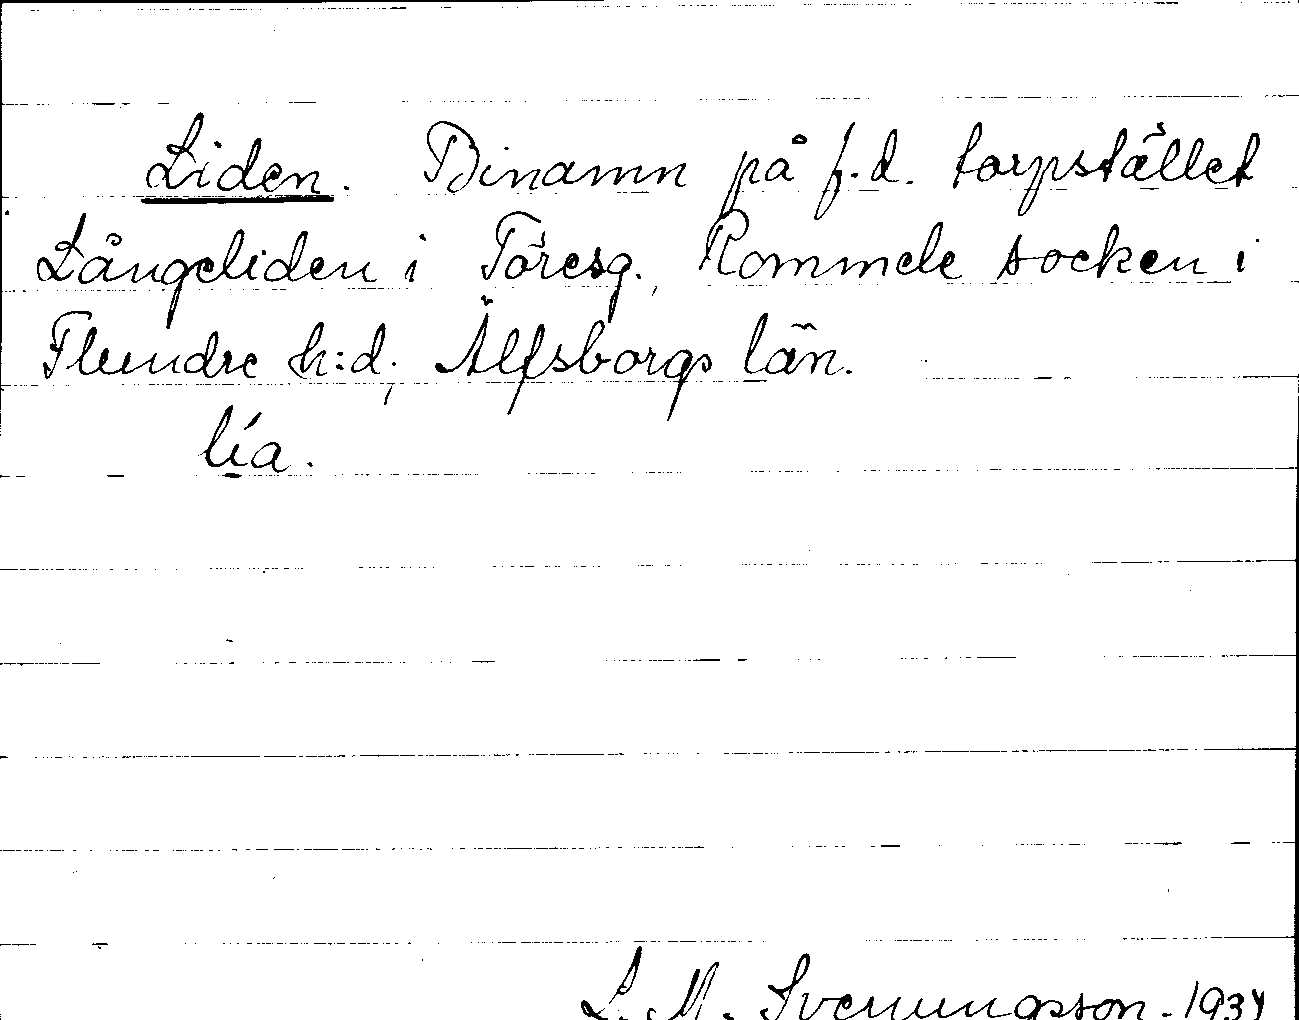 Liden. Binamn på f.d. torpstället
Långeliden i Töresg., Rommele socken i
Flundre h:d; Älfsborgs län.
lía.
L. M. Svenungsson. 1934